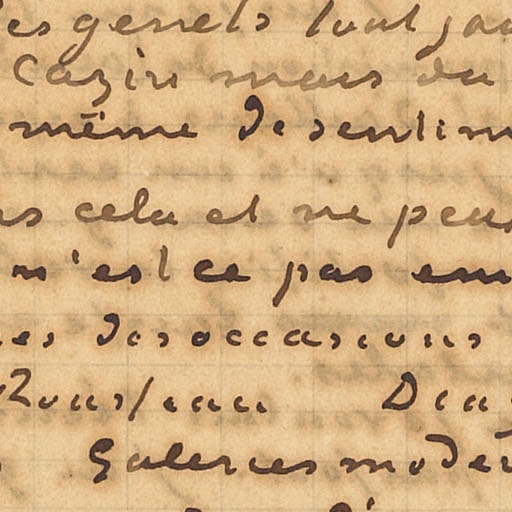 es genets tout jau
Cazin mais du
même de sentim
us cela et ne peus
n'est ce pas em
es des occasions
Rousseau Diaz
Galeries moder